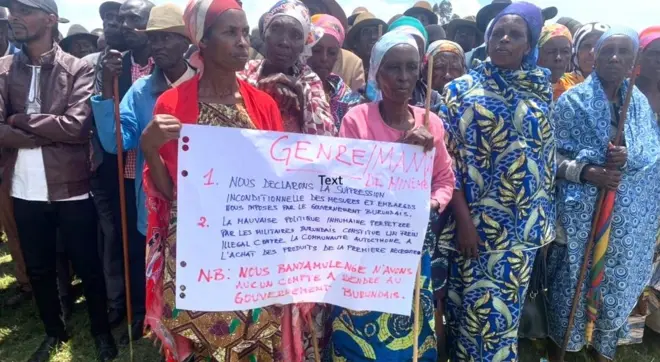 GENRE/MANI
DE MINEMB
1. NOUS DECLARONS LA SUPPRESSION
Text
INCONDITIONNELLE DES MESURES ET EMBARGOS
POSÉES PAR LE GOUVERNEMENT BURUNDAIS.
2. LA MAUVAISE POLITIQUE INHUMAINE PERPETREE
PAR LES MILITAIRES BURUNDAIS CONSTITUE UN FREIN
ILLEGAL CONTRE LA COMMUNAUTE AUTOCHTONE A
L'ACHAT DES PRODUITS DE LA PREMIERE NECESSITE
N.B: NOUS BANYAMULENGE N'AVONS
AUCUN COMPTE A RENDRE AU
GOUVERNEMENT BURUNDAIS.